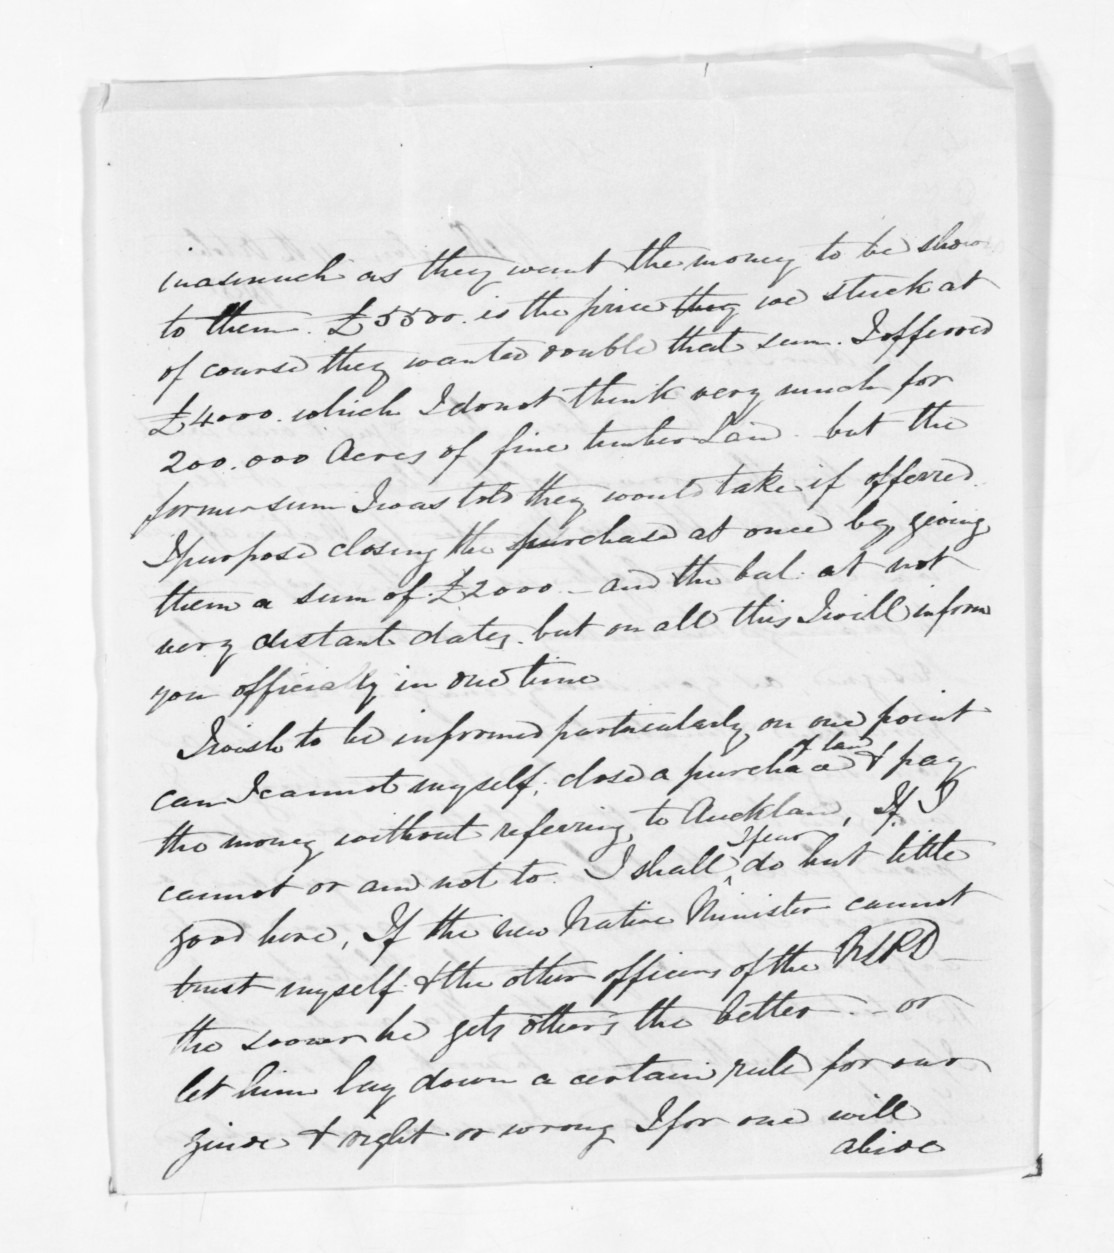 inasmuch as they want the money to be shown
to them. £5500. is the price they we stuck at
of course they wanted double that sum. I offerred
£4000. which I do not think very much for
200.000 Acres of fine timber Land but the
former sum I was told they would take if offerred.
I purpose closing the purchase at once by giving
them a sum of £2000 - and the bal. at not
very distant dates. but on all this I will inform
you officially in due time
I wish to be informed particularly on one point
can I cannot myself, close a purchase of land & pay
the money without referring to Auckland, If I
cannot or am not to. I shall I fear do but little
good here, If the new Native Minister cannot
trust myself & the other officers of the
the sooner he gets others the better - - or
let him lay down a certain rule for our
guide & right or wrong I for one will
abide